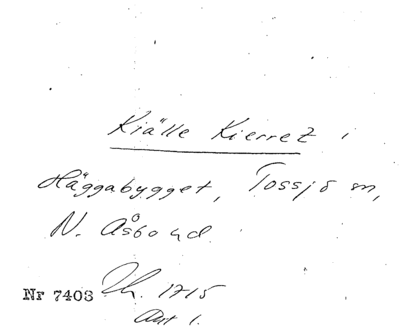 Kiälle Kierret i
Häggabygget, Tossjö sn,
N. Åsbo hd.
Nr 7403 Th. 1715
Avt 1.